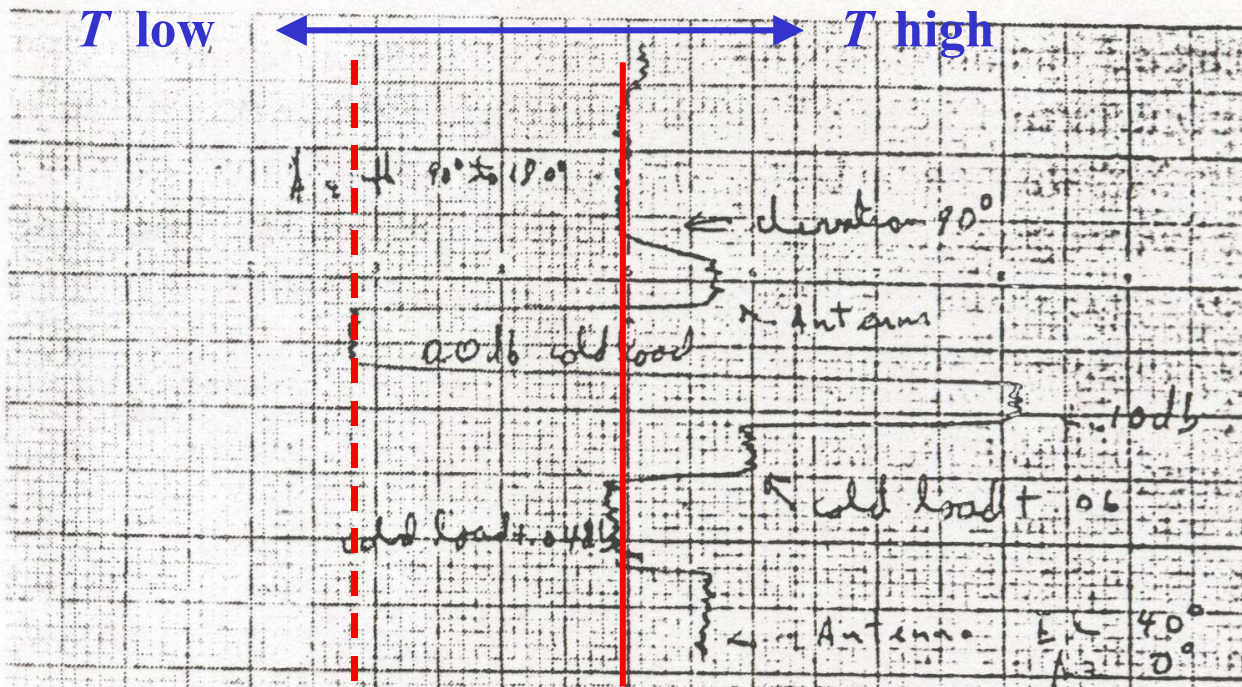 T low T high
90° to 180°
← elevation 90°
Antenna
0.0 db cold load
.10db
cold load + .06
cold load + .04db
← Antenna El 40°
Az 0°